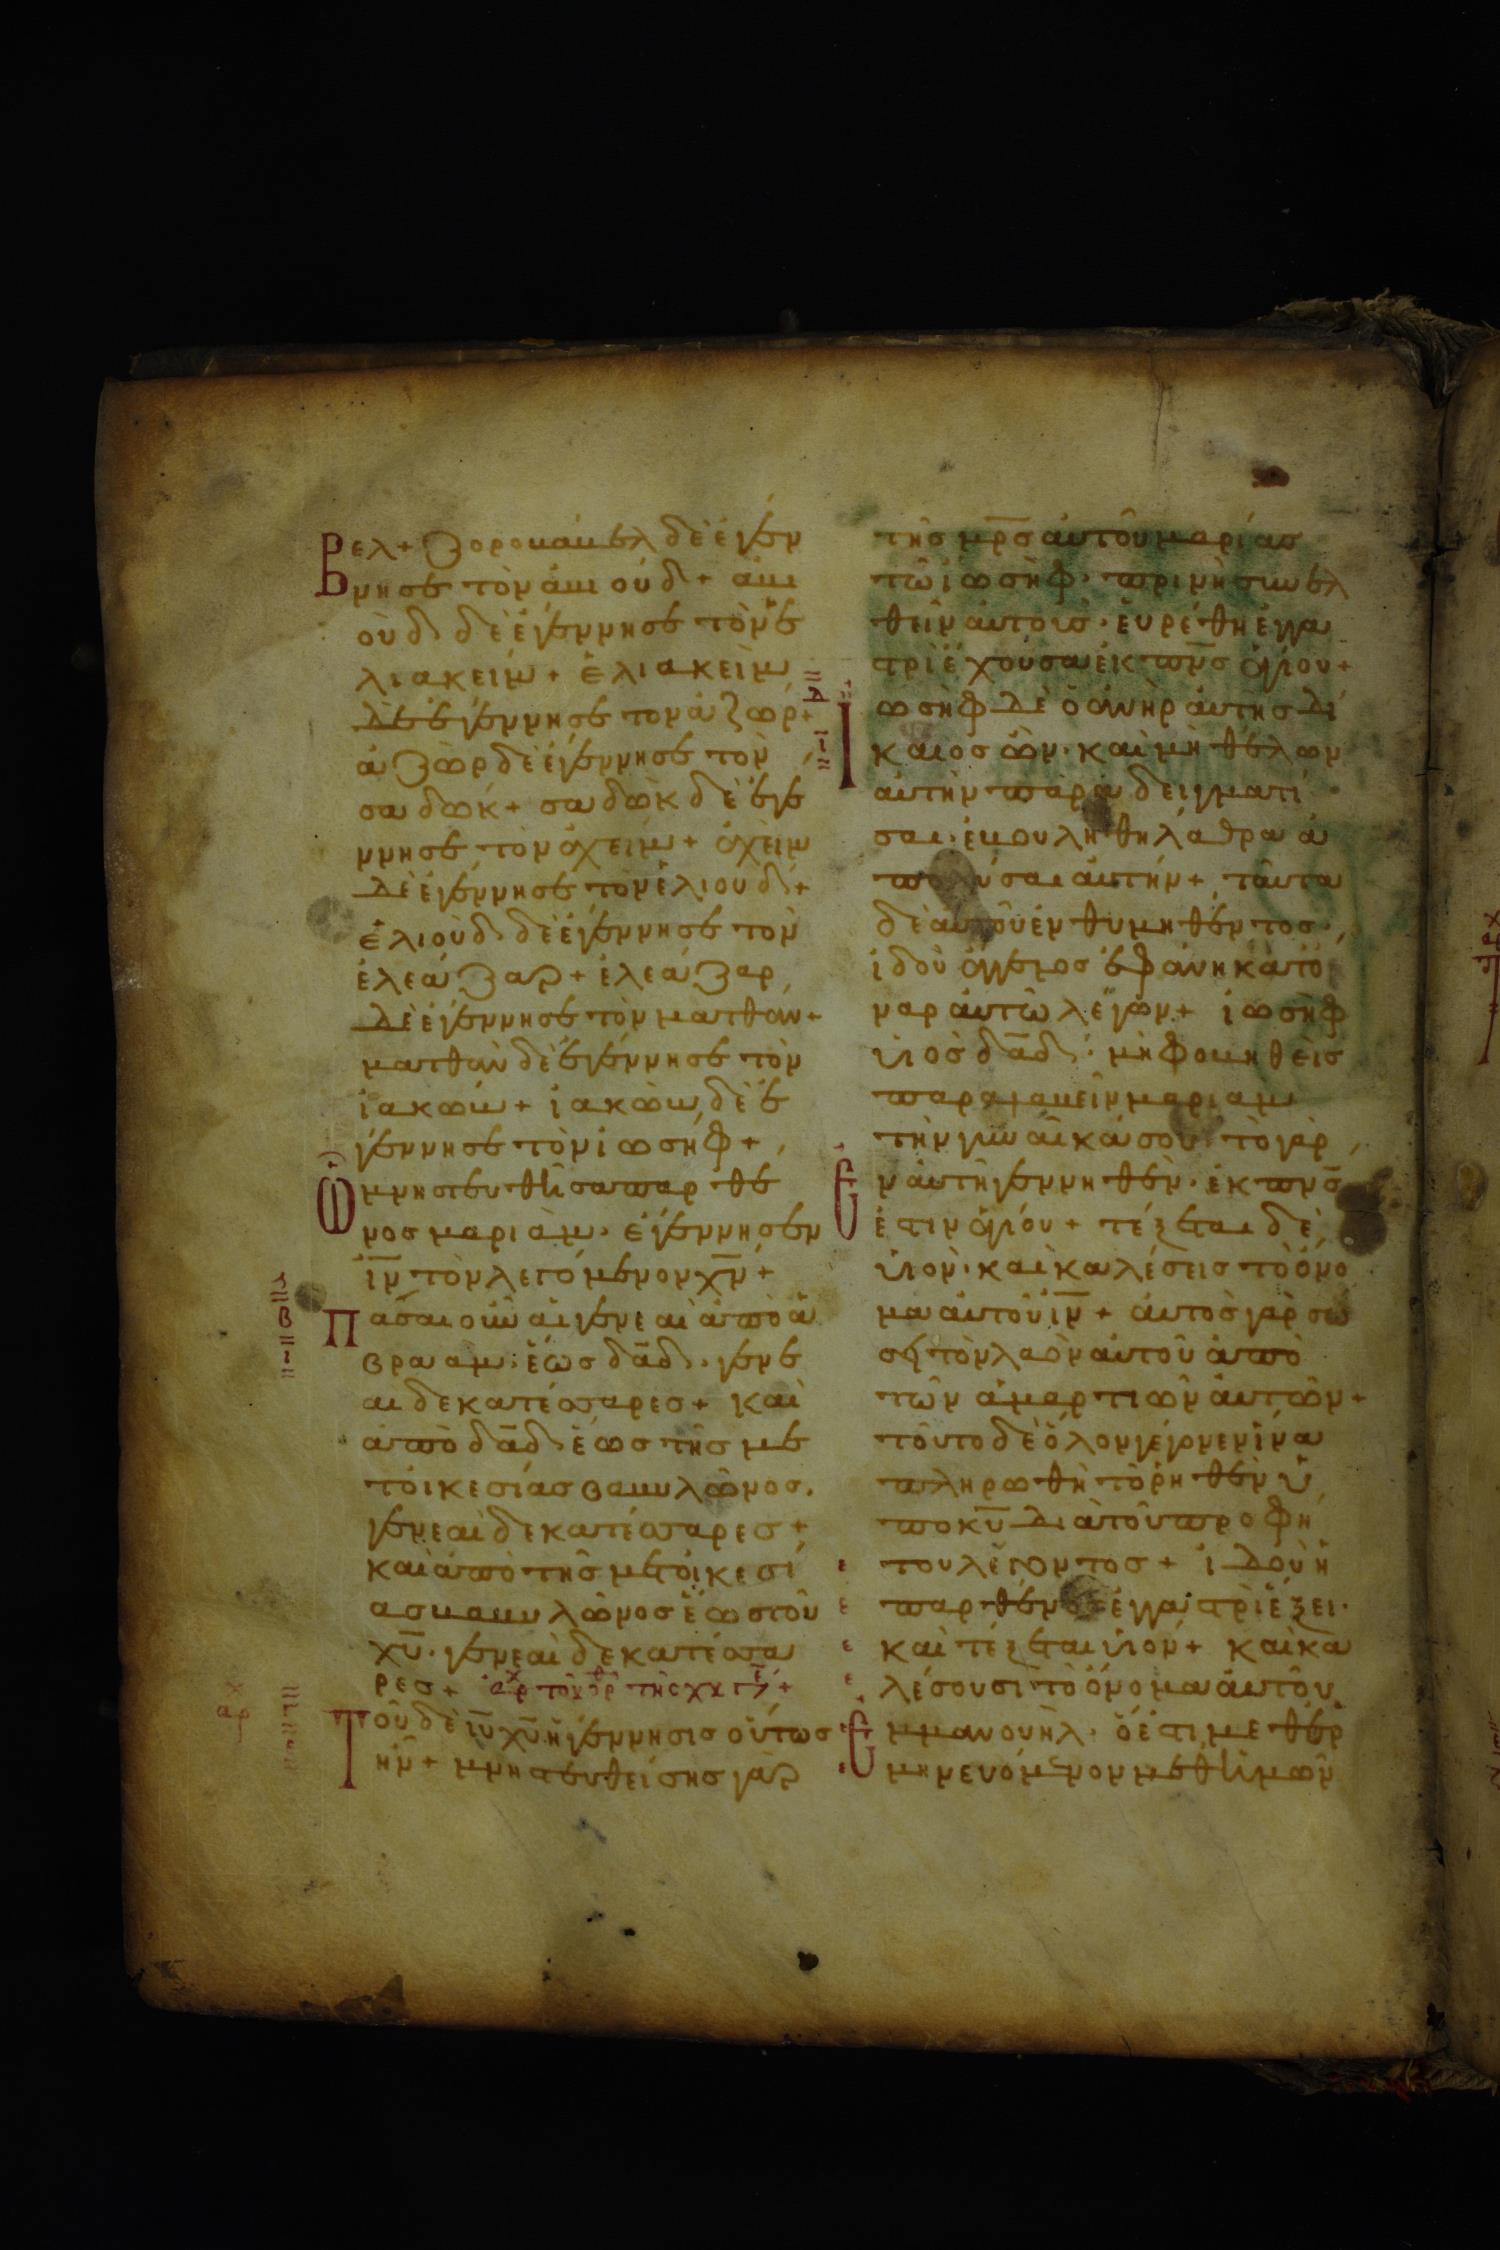 Βελ+ Ζοροβάβελ δὲ ἐγέν
νησε τὸν ἀβιούδ+ ἀβι
οὺδ δὲ ἐγέννησε τὸν ἐ
λιακείμ+ ἐλιακεὶμ
δὲ ἐγέννησε τὸν ἀζώρ+
ἀζὼρ δὲ ἐγέννησε τὸν
σαδώκ+ σαδὼκ δὲ ἐγέ
ννησε τὸν ἀχείμ+ ἀχεὶμ
δὲ ἐγέννησε τὸν ἐλιούδ+
ἐλιοὺδ δὲ ἐγέννησε τὸν
ἐλεάζαρ+ ἐλεάζαρ
δὲ ἐγέννησε τὸν ματθάν+
ματθὰν δὲ ἐγέννησε τὸν
ἰακώβ+ ἰακὼβ δὲ ἐ
γέννησε τὸν ἰωσήφ+
Ὧ μνηστευθῆσα παρθέ
νος μαριὰμ· ἐγέννησεν
ἰν̅ τὸν λεγόμενον χν̅+
Πᾶσαι οὖν αἱ γενεαὶ ἀπὸ ἀ
βραάμ· ἕως δᾱδ· γενε
αὶ δεκατέσσαρες+ καὶ
ἀπὸ δᾱδ ἕως τῆς με
τοικεσίας βαβυλῶνος·
γενεαὶ δεκατέσσαρες+
καὶ ἀπὸ τῆς μετοικεσί
ας βαβυλῶνος ἕως τοῦ
χυ̅· γενεαὶ δεκατέσσα
ρες+
Τοῦ δὲ ἰυ̅ χυ̅ ἡ γέννησις οὕτως
ἦν+ μνηστευθείσης γὰρ
τῆς μρ̅ς αὐτοῦ μαρίας
τῶ ἰωσήφ· πρὶν ἢ συνελ
θεῖν αὐτούς· εὑρέθη ἐγγα
στρὶ ἔχουσα ἐκ πν̅ς ἁγίου+
Ἰωσὴφ δὲ ὁ ἀνὴρ αὐτῆς δί
καιος ὤν· καὶ μὴ θέλων
αὐτὴν παραδειγματί
σαι· ἐβουλήθη λάθρα ἀ
πολύσαι αὐτήν+ ταῦτα
δὲ αὐτοῦ ἐνθυμηθέντος·
ἰδοὺ ἄγγελος ἐφάνη κατὸ
ναρ αὐτῶ λέγων+ ἰωσὴφ
υἱὸς δᾱδ· μὴ φοβηθεὶς
παραλαβεῖν μαριὰμ
τὴν γυναῖκά σου· τὸ γὰρ
Ἐν αὐτῆ γεννηθέν· ἐκ πνς̅
ἐστιν ἁγίου+ τέξεται δὲ
υἱόν· καὶ καλέσεις τὸ ὄνο
μα αὐτοῦ ἰν̅+ αὐτὸς γὰρ σώ
σει τὸν λαὸν αὐτοῦ ἀπὸ
τῶν ἁμαρτιῶν αὐτῶν+
τοῦτο δὲ ὅλον γέγονεν ἵνα
πληρωθῆ τὸ ῥηθὲν ὑ
πὸ κυ̅ διὰ τοῦ προφή
του λέγοντος+ ἰδοὺ ἡ
παρθένος ἐγγαστρὶ ἕξει·
καὶ τέξεται υἱόν+ καὶ κα
λέσουσι τὸ ὄνομα αὐτοῦ
Ἐμμανουήλ· ὅ ἐστι μεθερ
μηνευόμενον μεθ᾽ ἡμῶν